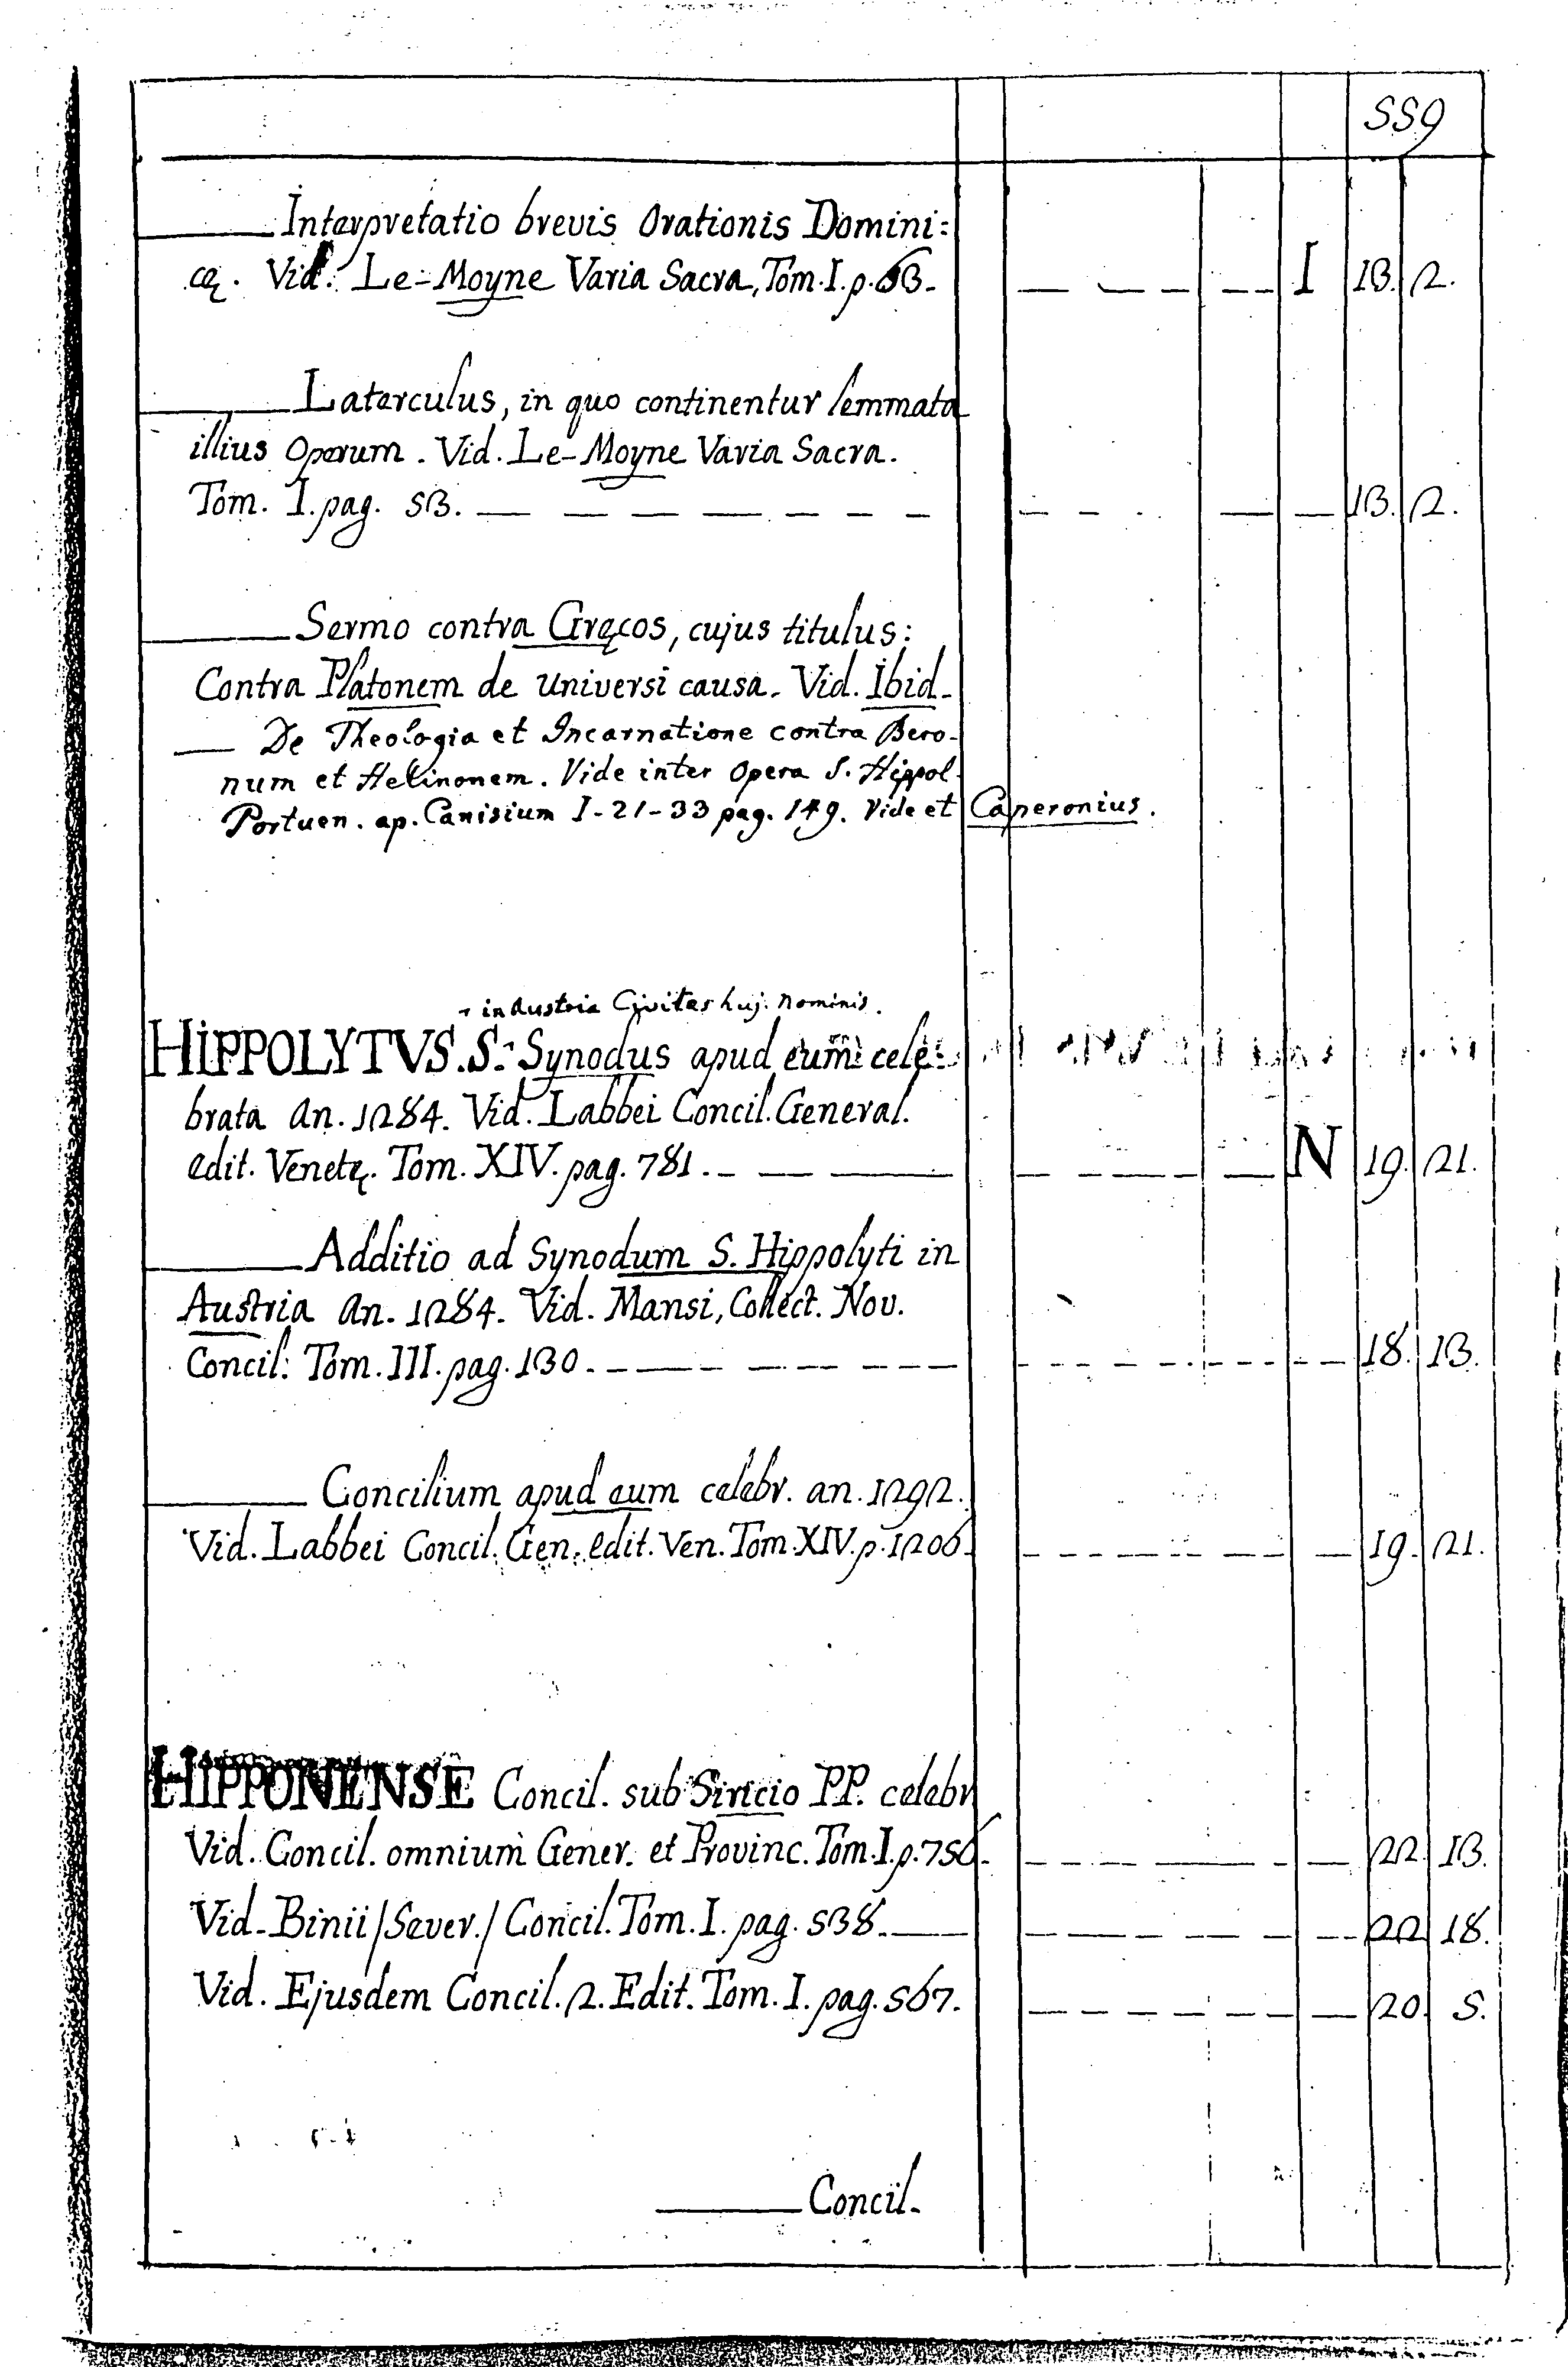 559
——— Interpretatio brevis Orationis Domini:
cę. Vid. Le-Moyne Varia Sacra, Tom. I. p. 63. — — — — — — I 13. 2.
——— Laterculus, in quo continentur lemmata
illius Operum. Vid. Le-Moyne Varia Sacra.
Tom. I. pag. 53. — — — — — — — 13. 2.
——— Sermo contra Gręcos, cujus titulus:
Contra Platonem de Universi causa. Vid. Ibid.
— De Theologia et Incarnatione contra Bero-
num et Helinonem. Vide inter Opera S. Hippol.
Portuen. ap. Canisium I-21-33 pag. 149. Vide et Caperonius.
in Austria Civitas huj. Nominis.
HIPPOLYTVS. S. Synodus apud eum cele:
brata An. 1284. Vid. Labbei Concil. General.
edit. Venetę. Tom. XIV. pag. 781. — — — N 19. 21.
——— Additio ad Synodum S. Hippolyti in
Austria An. 1284. Vid. Mansi, Collect. Nov.
Concil: Tom. III. pag. 130. — — — — — — 18. 13.
——— Concilium apud eum celebr. an. 1292.
Vid. Labbei Concil. Gen. edit. Ven. Tom. XIV. p. 1206. — — — — 19. 21.
HIPPONENSE Concil. sub Siricio PP. celebr
Vid. Concil. omnium Gener. et Provinc. Tom. I. p. 756. — — — — 22. 13.
Vid. Binii /Sever./ Concil. Tom. I. pag. 538. — — — — 22. 18.
Vid. Ejusdem Concil. 2. Edit. Tom. I. pag. 567. — — — — 20. 5.
——— Concil.